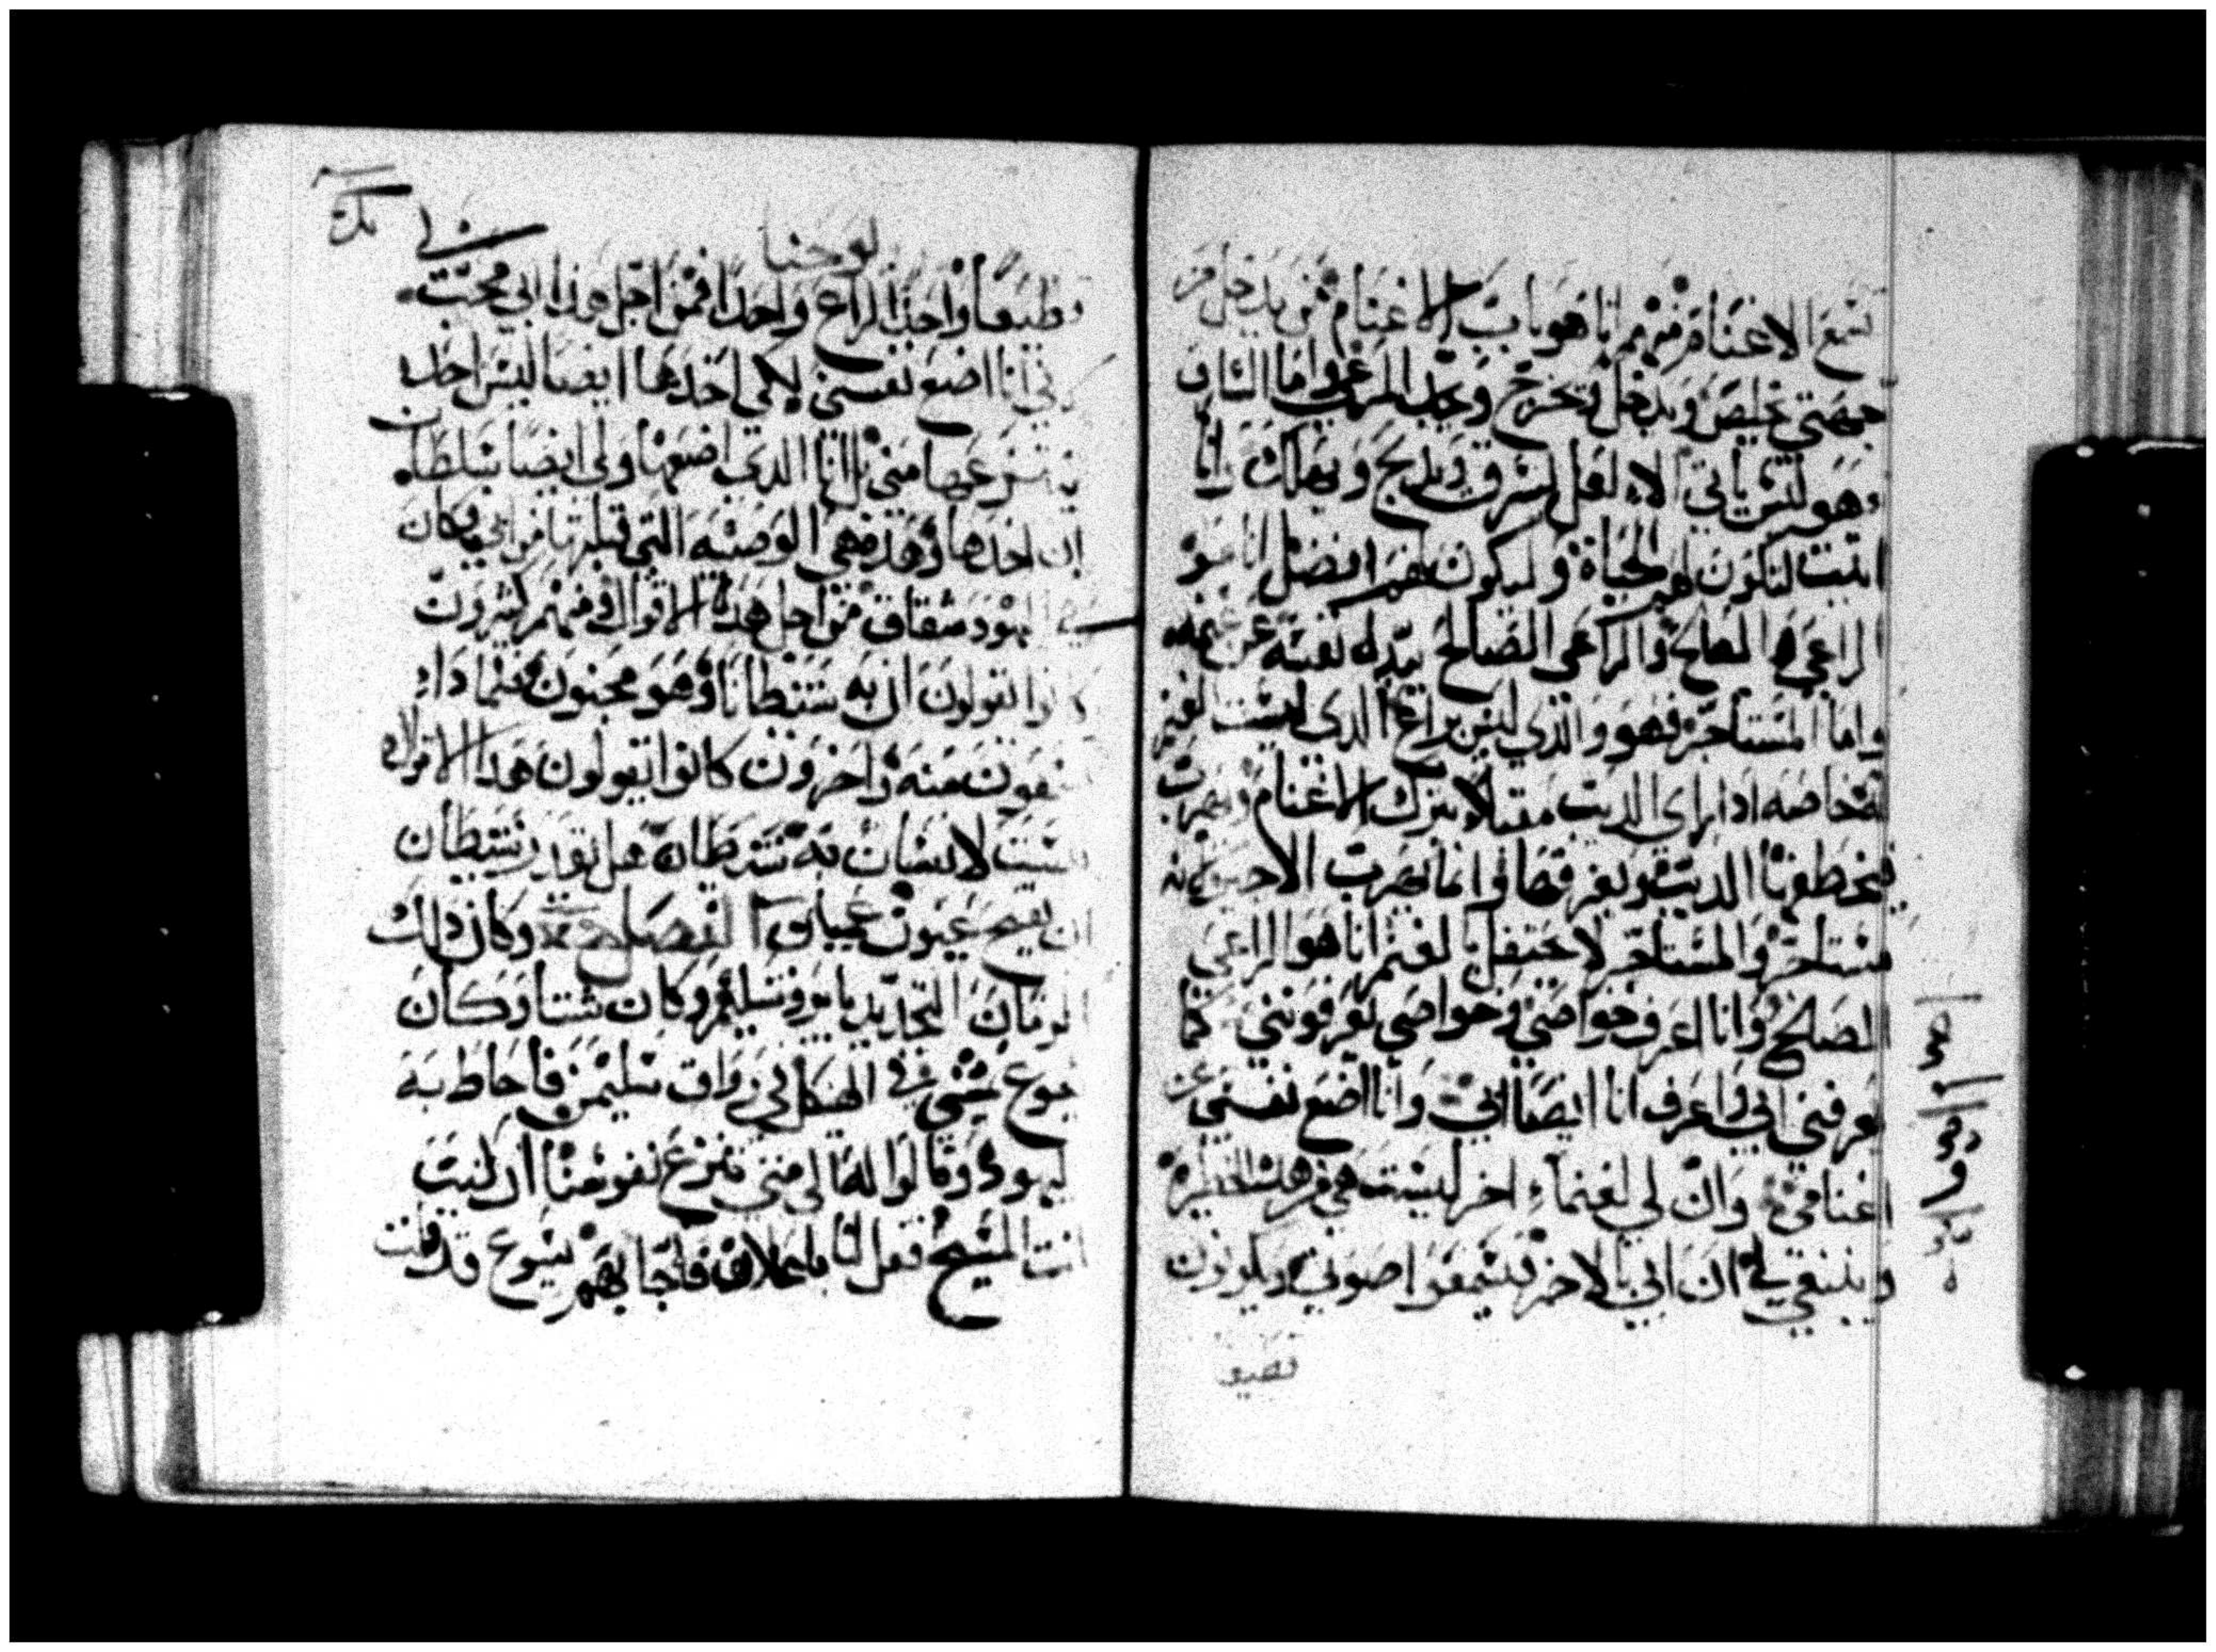 تسمع الاغنام منهم انا هو باب الاغنام فمن يدخل من
جهتي يخلص ويدخل وتخرج ويجد المرعى واما السارق
وهو ليس ياتي الا لعل يسرق ويذبح ويهلك وانا
اتيت لتكون لهم الحياة وليكون لهم افضل انا هو
الراعي الصالح والراعي الصالح يبذل نفسه عن غنمه
واما المستاجر فهو والذي ليس براع الذي ليست الغنم
له خاصه اذا راي الديب مقبلا يترك الاغنام ويهرب
فيخطفها الديب ويفرقها وانما يهرب الاجير لانه
مستاجر والمستاجر لا يحتفل بالغنم انا هو الراعي
الصالح وانا اعرف خواصي وخواصي تعرفونني كما
يعرفني ابي واعرف انا ايضا ابي وانا اضع نفسي عن
اغنامي وان لي لغنماء اخر ليست هي من هذه الحظيرة
وينبغي لي ان اتي بالاخر فيسمعوا صوتي ويكونون
قطيعا
يوحنا
قطيعا واحدا لراع واحدا فمن اجل هذا ابي محبت
لاني انا اضع نفسي لكي اخدها ايضا ليس احد
ينتزعها مني بل انا الذي اضعها ولي ايضا سلطان
ان اخدها وهذه هي الوصيه التي قبلتها من ابي وكان
في اليهود شقاق من اجل هذه الاقوال فمنهم كثيرون
كانوا يقولون ان به شيطانا وهو مجنون فلماذا
تسمعون منه واخرون كانوا يقولون هذا الاقوال
ليست لانسان به شيطان هل يقدر شيطان
ان يفتح عيون عميان الفصل وكان ذلك
الزمان التجديد باوروشليم وكان شتا وكان
يسوع يمشي في الهيكل في رواق سليمن فاحاط به
اليهود وقالوا له الي متى تنزع نفوسنا ان كنت
انت المسيح فقل لنا باعلان فاجابهم يسوع قد قلت